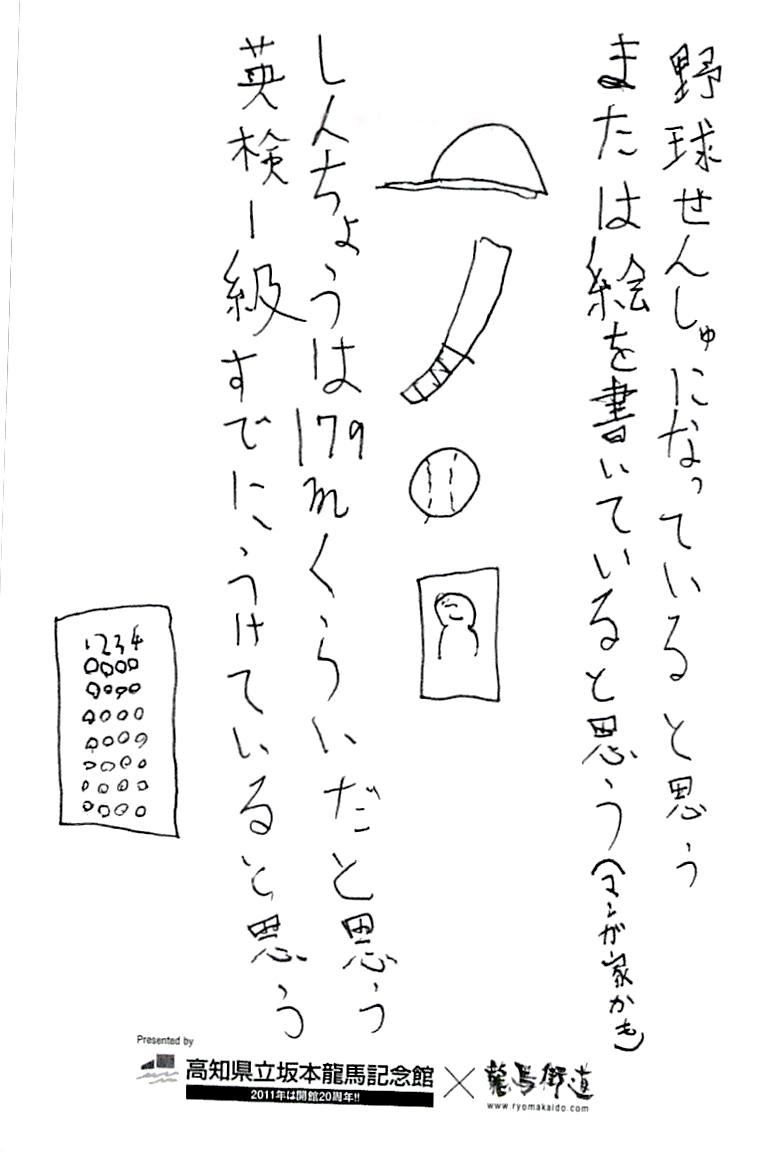 野球せんしゅになっていると思う
または絵を書いていると思う(マンが家かも)
しんちょうは179mくらいだと思う
英検1級すでにうけていると思う
1234
Presented by
高知県立坂本龍馬記念館
2011年は開館20周年!!
×
龍馬街道
www.ryomakaido.com